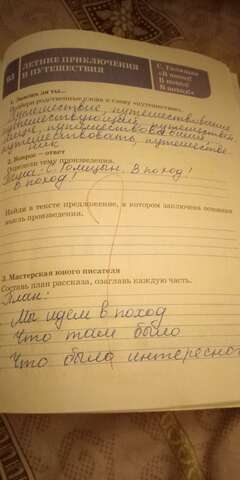 63
ЛЕТНИЕ ПРИКЛЮЧЕНИЯ
И ПУТЕШЕСТВИЯ
С. Голицын
«В поход!
В поход!
В поход!»
1. Знаешь ли ты...
Подбери родственные слова к слову «путешествие».
Путешествие, путешествование
путешествующий,
путешествовать, путешествен
ник
2. Вопрос – ответ
Определи тему произведения.
С. Голицын. В поход!
В поход!
Найди в тексте предложение, в котором заключена основная
мысль произведения.
3. Мастерская юного писателя
Составь план рассказа, озаглавь каждую часть.
План:
Мы идем в поход
Что там было
Что было интересног